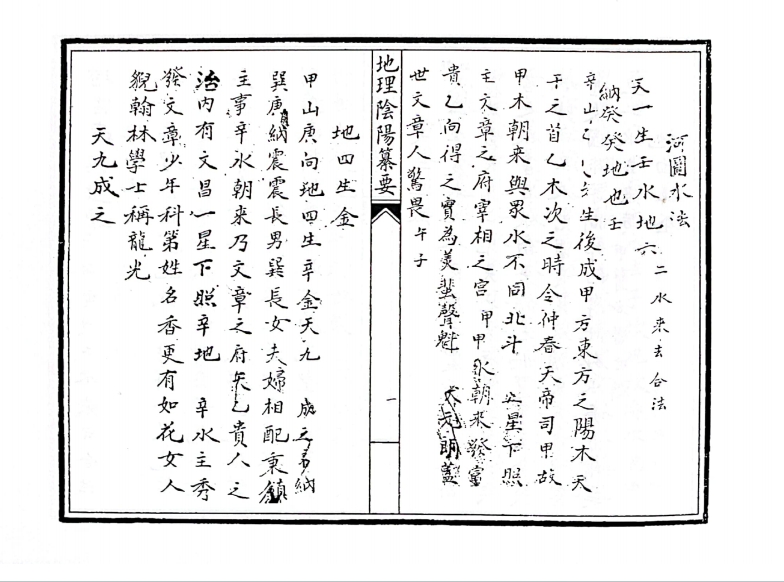 河圖水法
天一生壬水地六 二水来去合法
納癸癸地也壬
辛山 生後成甲方東方之陽木天
干之首乙木次之時令仲春天帝司甲故
甲木朝来與眾水不同北斗 星下照
主文章之府宰相之宮甲甲水朝来發富
貴乙向得之實為美蜚聲魁 明蓋
世文章人驚畏午子
地理陰陽纂要
一
地四生金
甲山庚向地四生辛金天九 成之 納
巽庚納震震長男巽長女夫婦相配秉鎮
主事辛水朝来乃文章之府矣乙貴人之
治内有文昌一星下照辛地 辛水主秀
發文章少年科第姓名香更有如花女人
貌翰林學士稱龍光
天九成之